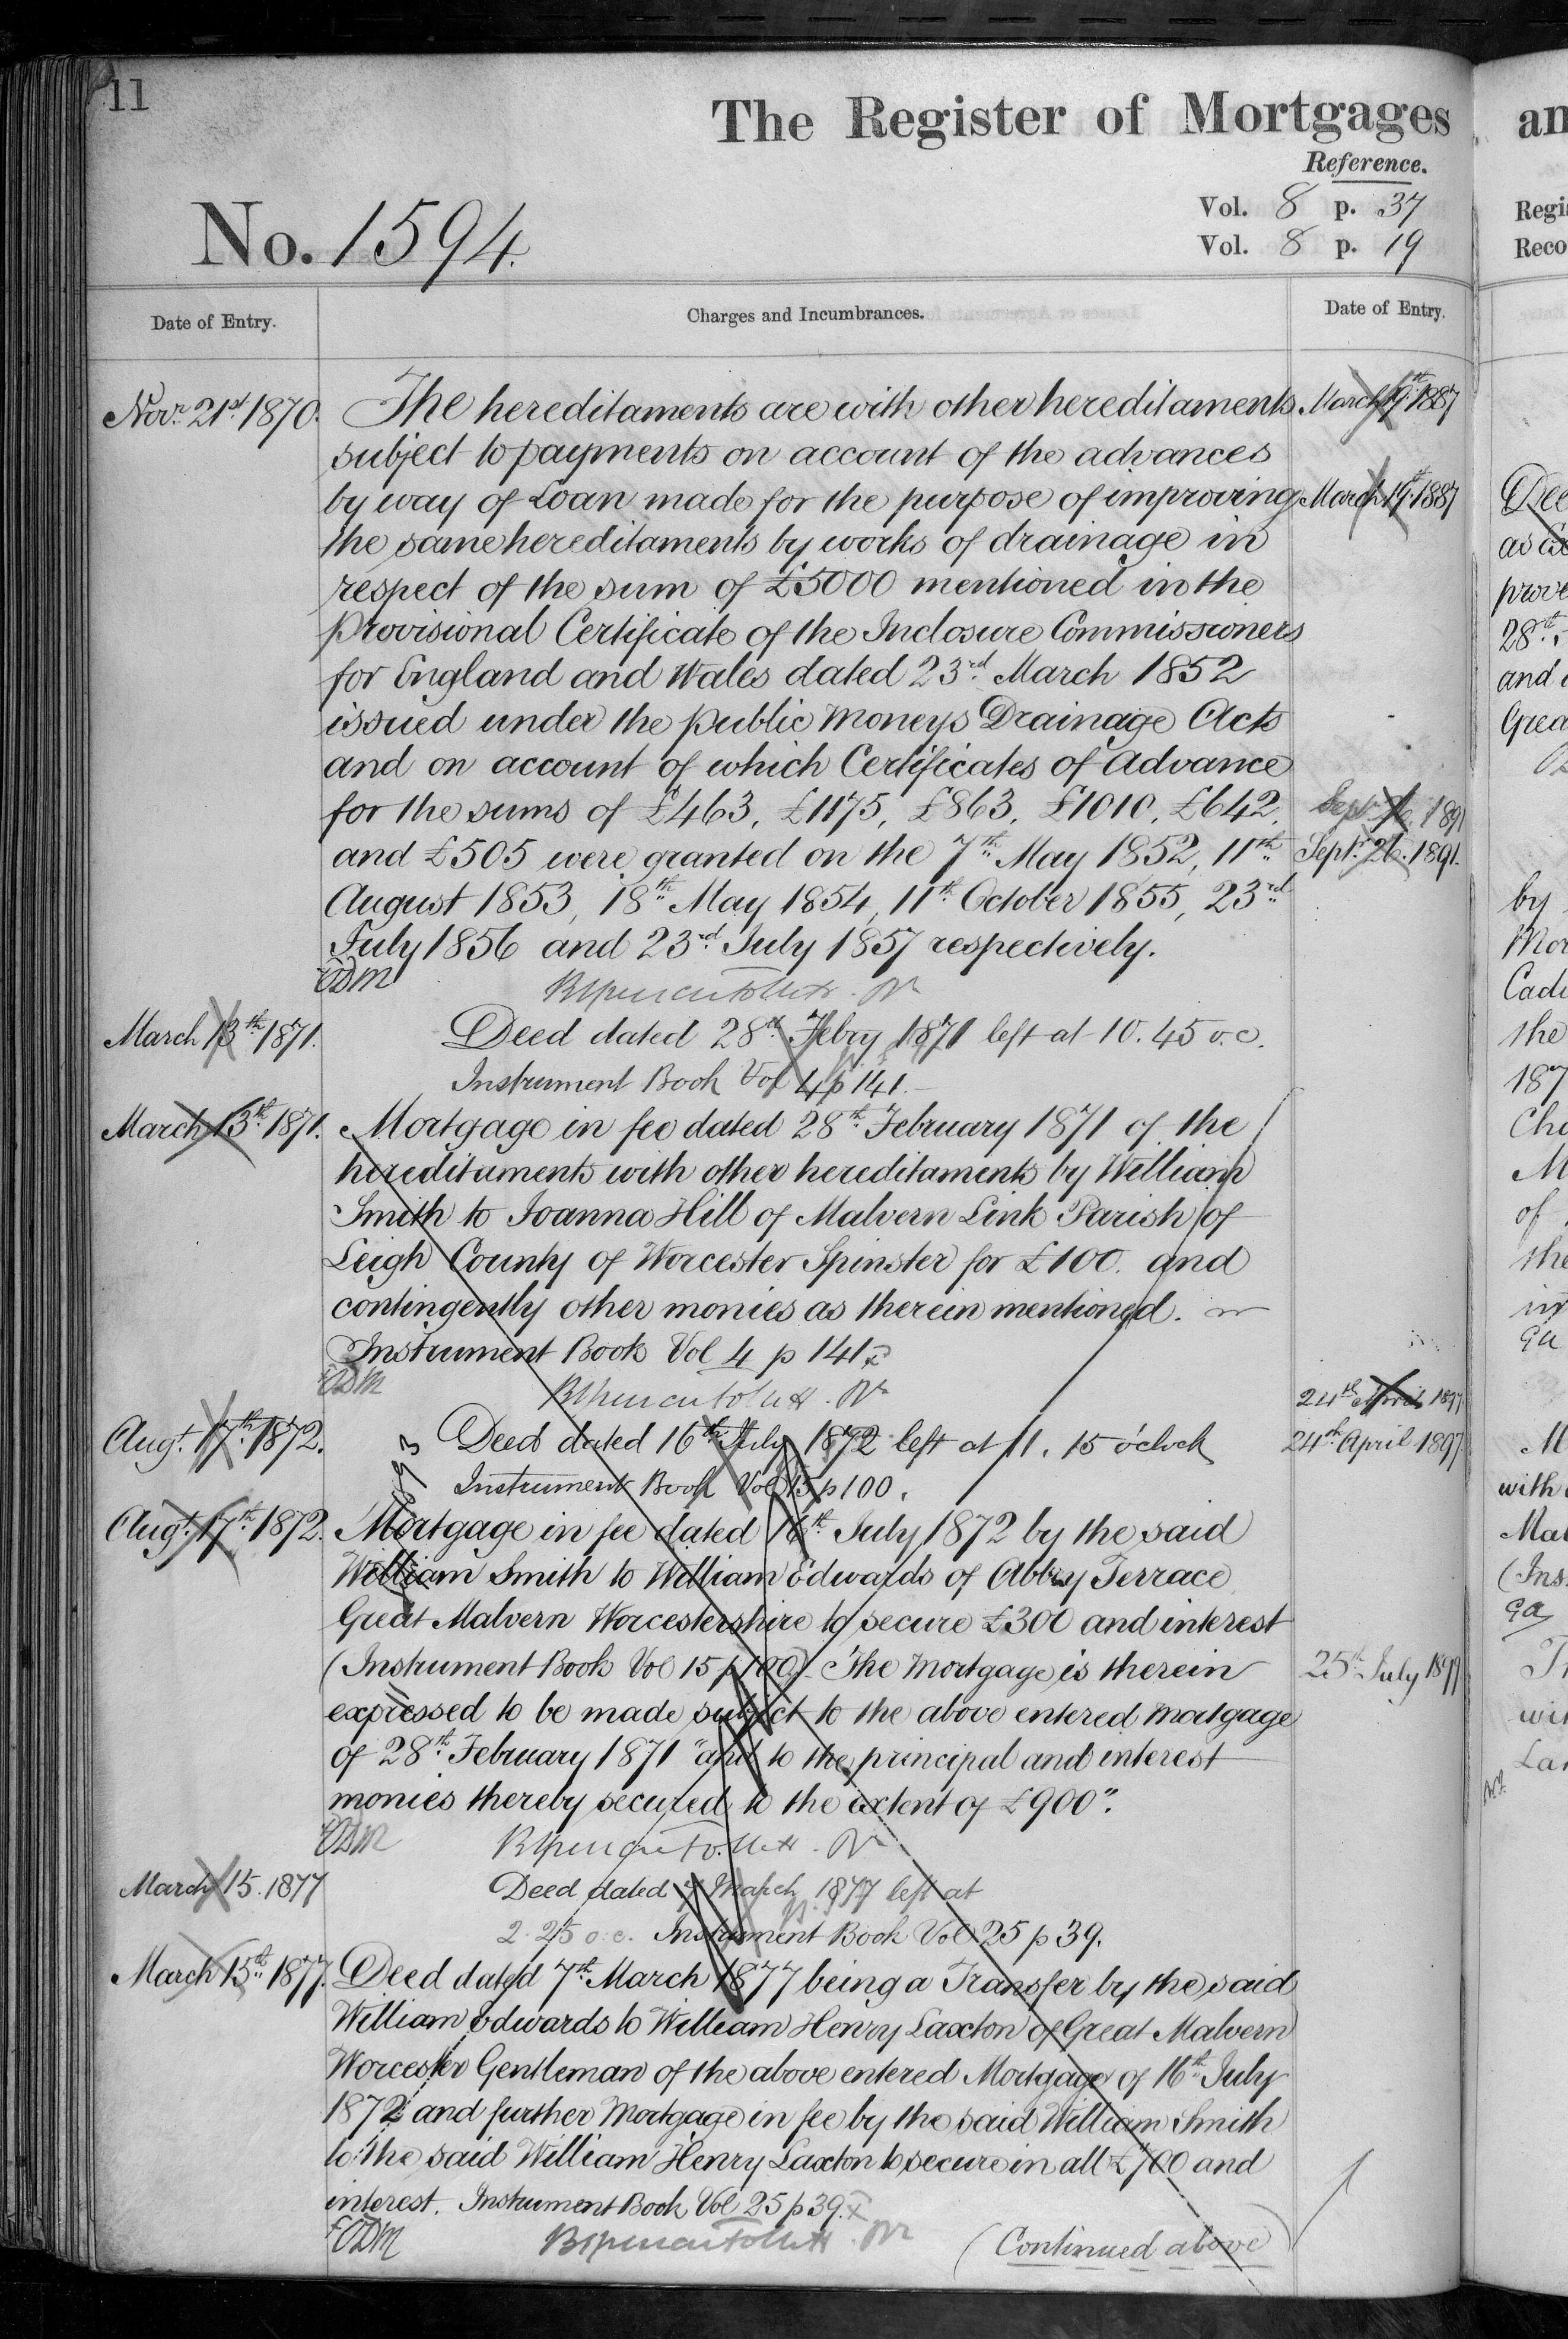 11
The Register of Mortgages
Reference.
Vol. 8 p. 37
No. 1594.
Vol. 8 p. 19
Date of Entry.
Charges and Incumbrances.
Date of Entry.
Novr. 21st 1870.
The hereditaments are with other hereditaments
subject to payments on account of the advances
by way of Loan made for the purpose of improving
the same hereditaments by works of drainage in
respect of the sum of £5000 mentioned in the
Provisional Certificate of the Inclosure Commissioners
for England and Wales dated 23rd March 1852
issued under the public Moneys Drainage Acts
and on account of which Certificates of Advance
for the sums of £463, £1175, £863, £1010, £642,
and £505 were granted on the 7th May 1852, 11th
August 1853, 18th May 1854, 11th October 1855, 23rd
July 1856 and 23rd July 1857 respectively.
March 13th 1871.
Deed dated 28th Febry 1871 left at 10.45 o.c.
Instrument Book Vol 4 p 141.
March 13th 1871.
Mortgage in fee dated 28th February 1871 of the
hereditaments with other hereditaments by William
Smith to Joanna Hill of Malvern Link Parish of
Leigh County of Worcester Spinster for £100. and
contingently other monies as therein mentioned.
Instrument Book Vol 4 p 141
Augt. 17th 1872.
Deed dated 16th July 1872 left at 11.15 o'clock
Instrument Book Vol 15 p 100.
Augt. 17th 1872.
Mortgage in fee dated 16th July 1872 by the said
William Smith to William Edwards of Abbey Terrace
Great Malvern Worcestershire to secure £300 and interest
(Instrument Book Vol 15 p 100) The Mortgage is therein
expressed to be made subject to the above entered Mortgage
of 28th February 1871 "and to the principal and interest
monies thereby secured to the extent of £900".
March 15. 1877
Deed dated 7 March 1877 left at
2.25 o.c. Instrument Book Vol 25 p 39.
March 15th 1877.
Deed dated 7th March 1877 being a Transfer by the said
William Edwards to William Henry Laxton of Great Malvern
Worcester Gentleman of the above entered Mortgage of 16th July
1872 and further Mortgage in fee by the said William Smith
to the said William Henry Laxton to secure in all £700 and
interest. Instrument Book Vol 25 p 39.
(Continued above)
March 19th 1887
March 19th 1887
Sept. 26. 1891
Sept. 26. 1891.
24th April 1897
24th April 1897
25th July 1899
an
Regi
Reco
Dee
prove
28th
and
Grea
by
Mor
Cad
the
187
Ch
M
of
the
M
with
Mal
(Ins.
wi
La